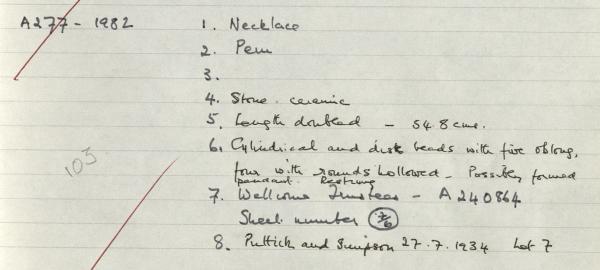 A277-1982 1. Necklace
2. Peru
3.
4. Stone. ceramic
5. Length doubled - 54.8 cms.
6. Cylindrical and disk beads with five oblong,
four with rounds hollowed - Possibly formed
pendant. Restrung
7. Wellcome Trustees - A 240864
Sheet number 2/6
103
8. Puttick and Simpson 27.7.1934 Lot 7